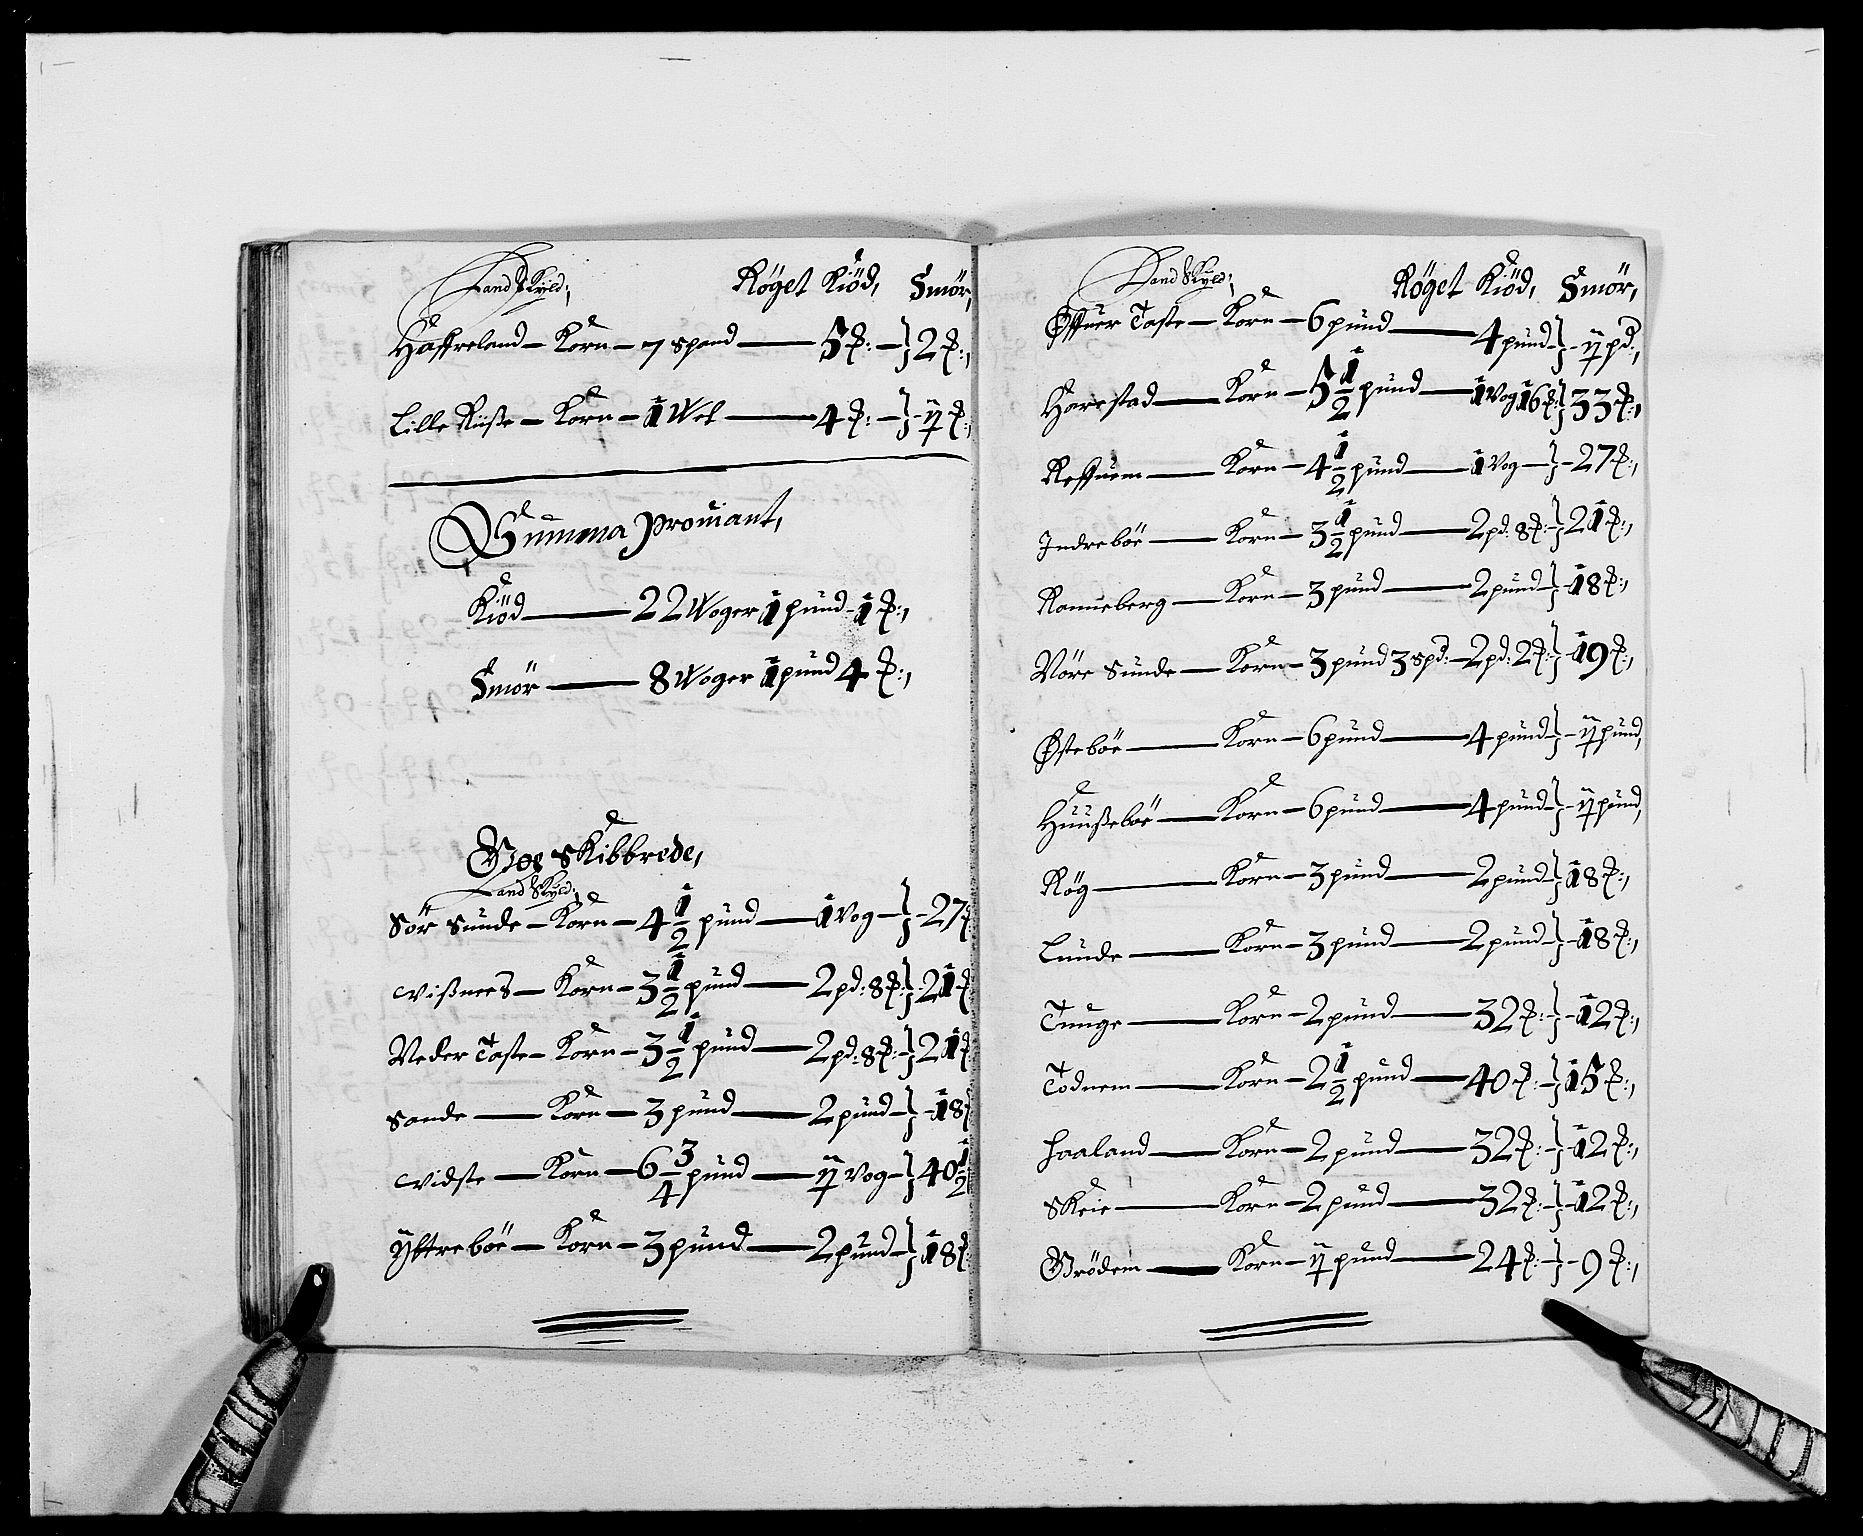 Land Skyld; Röget Kiöd, Smör,
Haffreland — Korn — 7 spand — 5 ℔: — } 2 ℔:,
Lille Riiße — Korn — 1 Wet — 4 ℔: — } - ij ℔:,
Summa Proviant,
Kiöd — 22 Woger 1 pund - 1 ℔:,
Smör — 8 Woger 1 pund 4 ℔:,
Goe Skibbrede,
Land Skyld;
Sör Sunde — Korn — 4 1/2 pund — 1 Vog — } - 27 ℔
Wißnees — Korn — 3 1/2 pund — 2 pd: 8 ℔: } 21 ℔
Neder Taste — Korn — 3 1/2 pund — 2 pd: 8 ℔: } 21 ℔
Sande — Korn — 3 pund — 2 pund — } - 18 ℔
Widste — Korn — 6 3/4 pund — ij Vog — } 40 1/2
Yttreböe — Korn — 3 pund — 2 pund — } 18 ℔
Land Skyld; Röget Kiöd, Smör,
Öffuer Taste — Korn — 6 pund — 4 pund } - ij pd:,
Harestad — Korn — 5 1/2 pund — 1 Vog 16 ℔: } 33 ℔:,
Reffnem — Korn — 4 1/2 pund — 1 Vog — } - 27 ℔:,
Indreböe — Korn — 3 1/2 pund — 2 pd: 8 ℔: } 21 ℔:,
Ranneberg — Korn — 3 pund — 2 pund } - 18 ℔:,
Nöre Sunde — Korn — 3 pund 3 spd: — 2 pd: 2 ℔: } - 19 ℔:,
Östeböe — Korn — 6 pund — 4 pund } - ij pund,
Huußeböe — Korn — 6 pund — 4 pund } - ij pund,
Rög — Korn — 3 pund — 2 pund } 18 ℔:,
Lunde — Korn — 3 pund — 2 pund } - 18 ℔:,
Tunge — Korn — 2 pund — 32 ℔: — } - 12 ℔:,
Todnem — Korn — 2 1/2 pund — 40 ℔: — } 15 ℔:,
Haaland — Korn — 2 pund — 32 ℔: — } - 12 ℔:,
Skeie — Korn — 2 pund — 32 ℔: — } - 12 ℔:,
Grödem — Korn — ij pund — 24 ℔: — } - 9 ℔:,